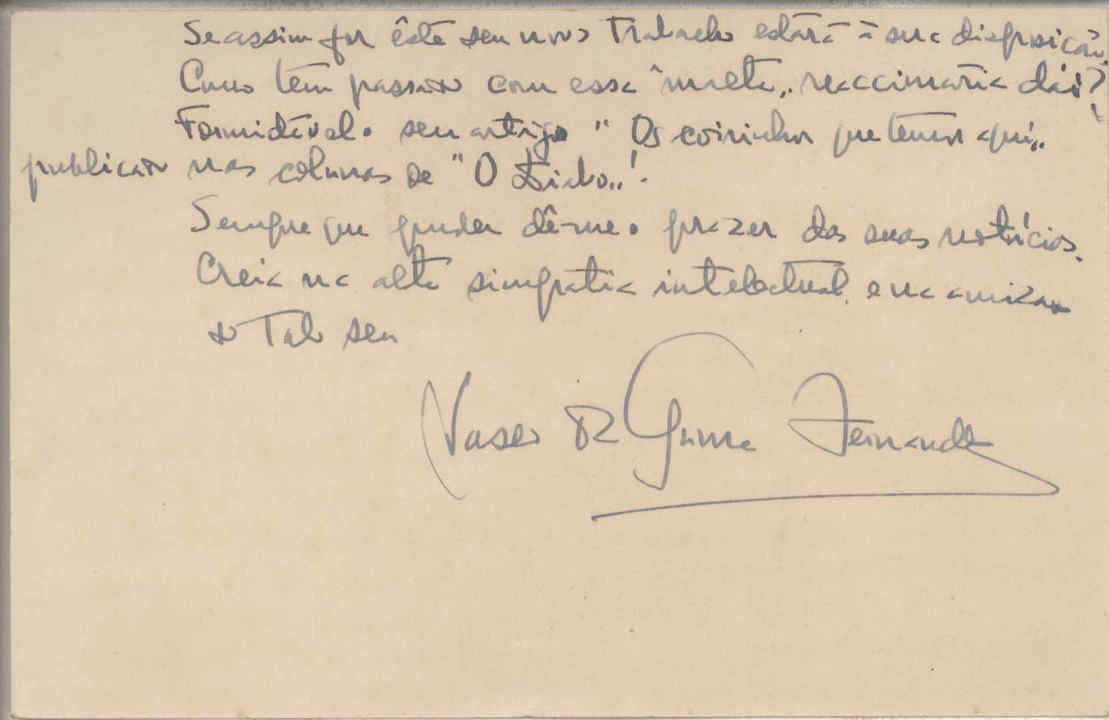 Se assim fôr êste seu novo trabalho estará à sua disposição.
Como tem passado com essa "malta" reaccionária daí?
Formidável o seu artigo "Os coirinhos que temos aqui"
publicado nas colunas de "O Diabo"!
Sempre que puder dê-me o prazer das suas notícias.
Creia na alta simpatia intelectual e na amizade
do Todo seu
Vasco da Gama Fernandes